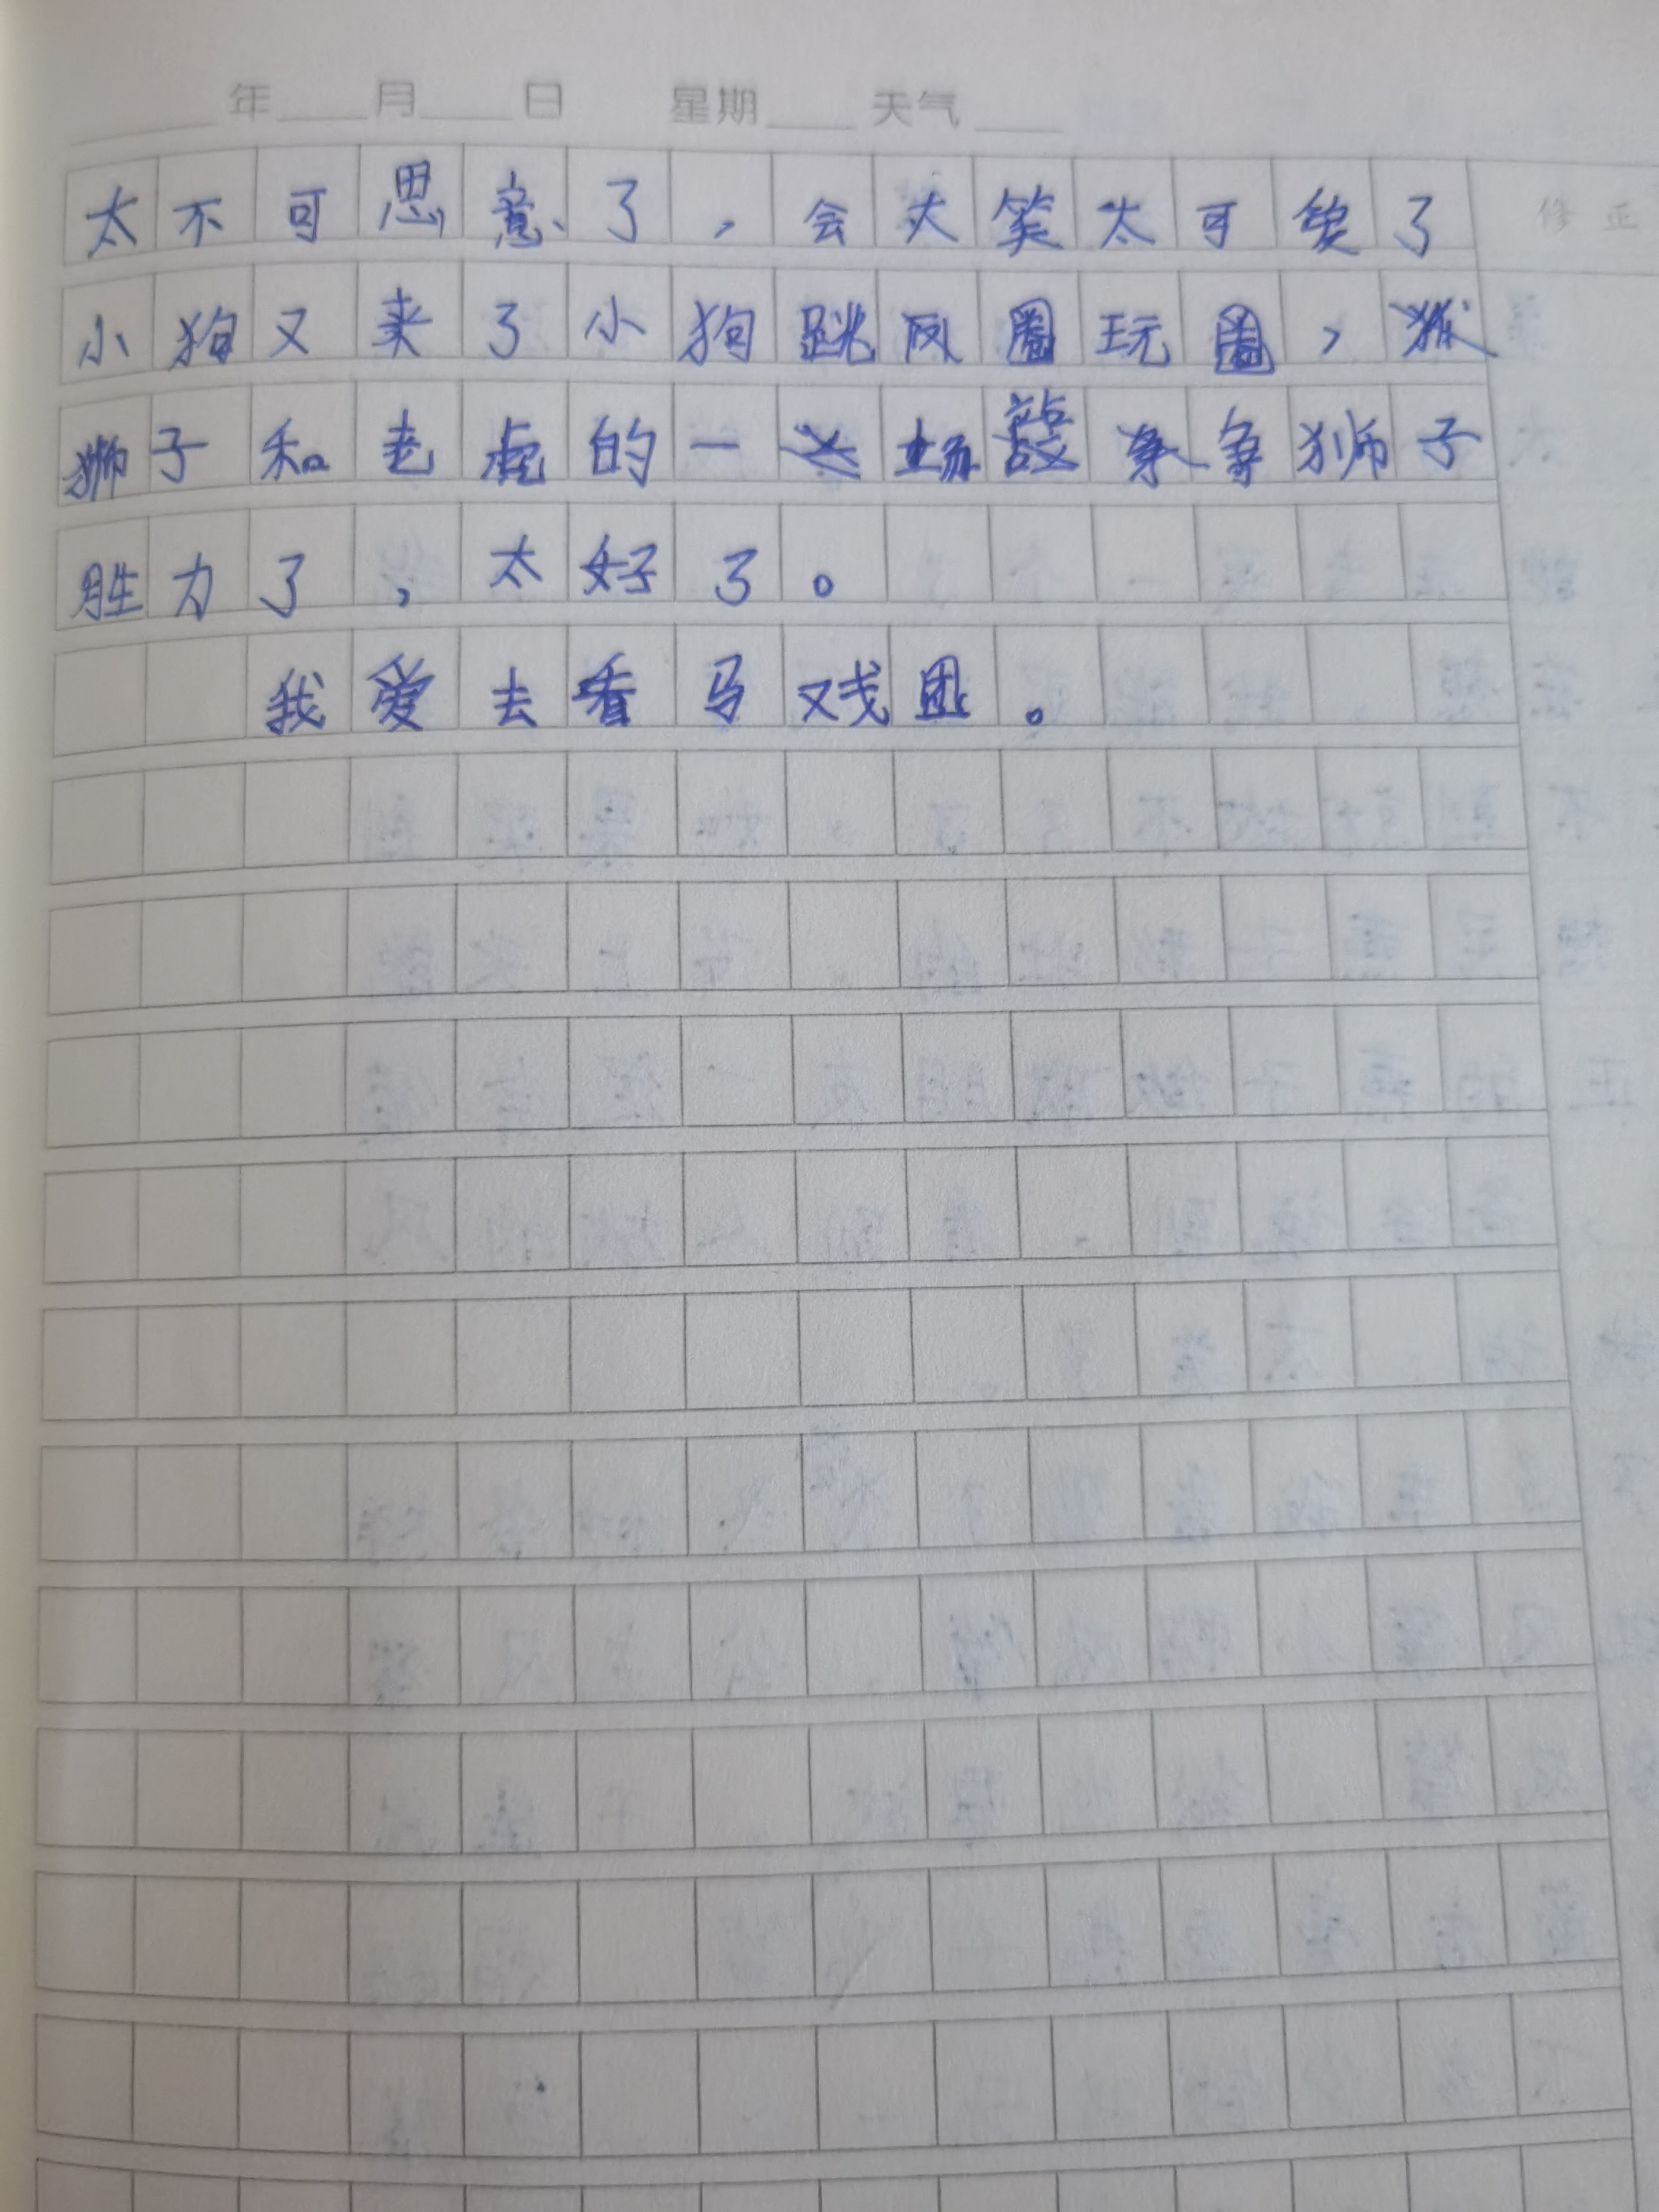 年 月 日 星期 天气
太不可思意了，会大笑太可矣了
修正
小狗又来了小狗跳风圈玩圈，
狮子和老虎的一场争狮子
胜力了，太好了。
我爱去看马戏团。